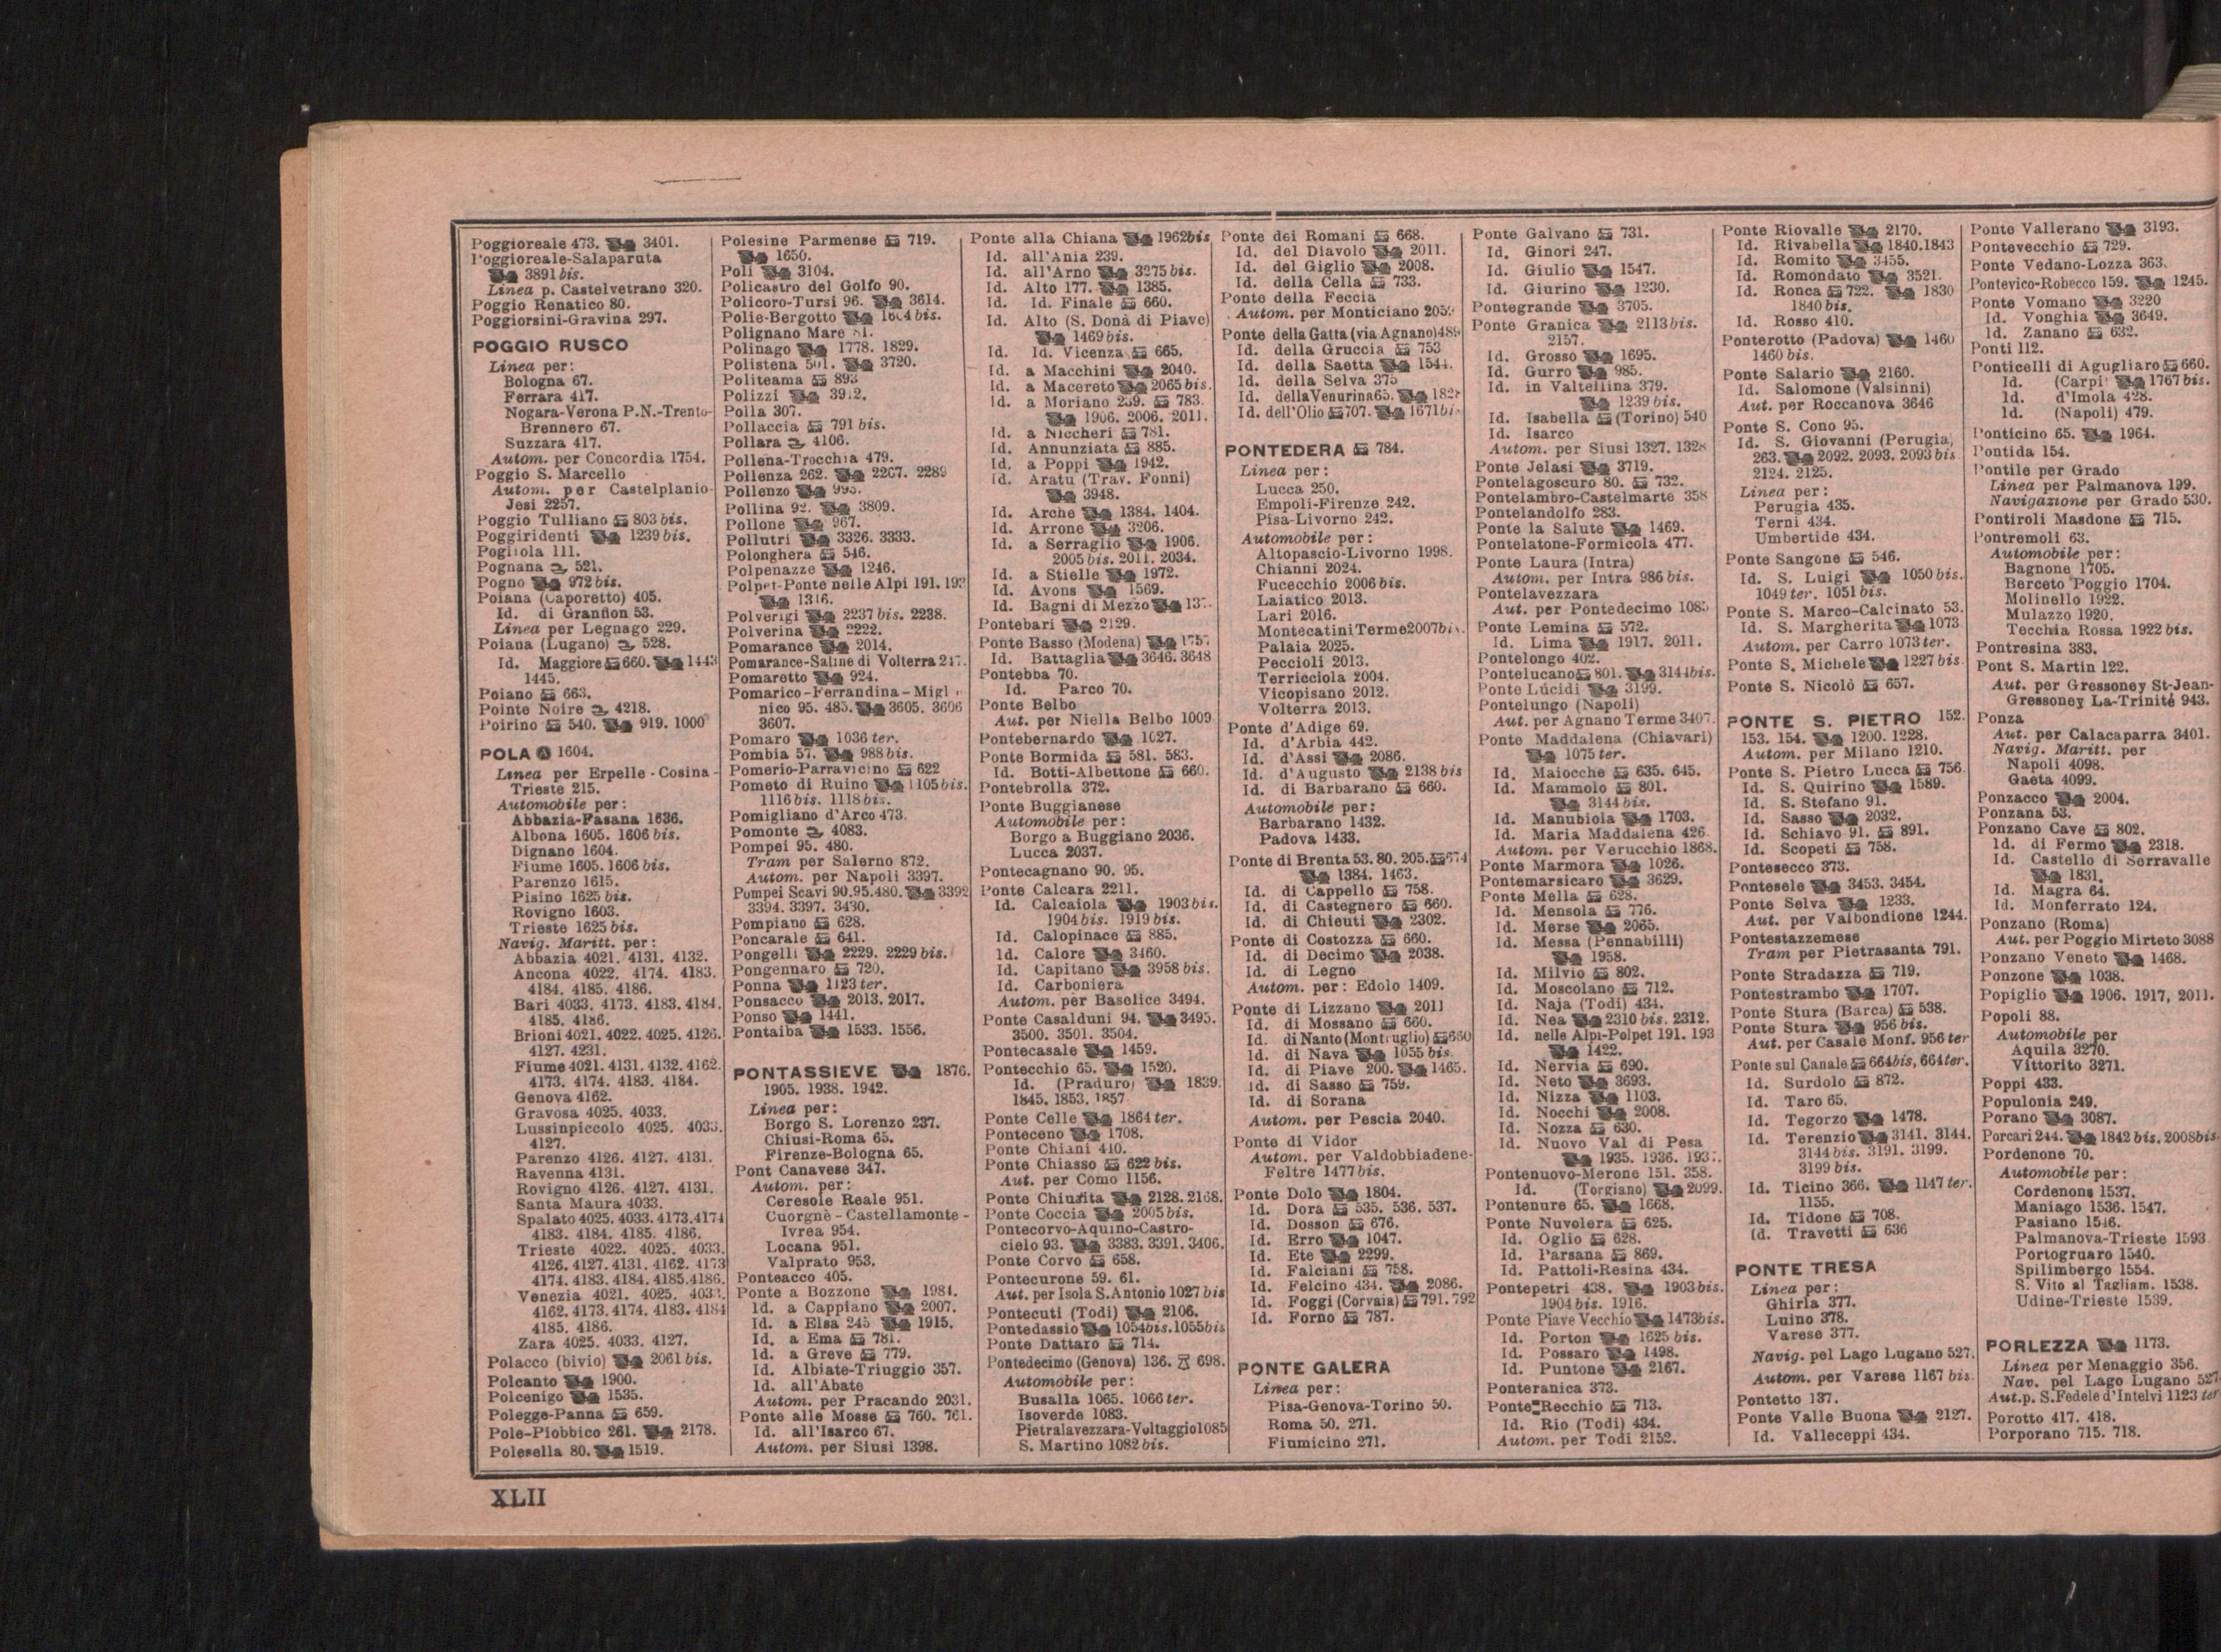 Poggioreale 473. 3401.
Poggioreale-Salaparuta
3891 bis.
Linea p. Castelvetrano 320.
Poggio Renatico 80.
Poggiorsini-Gravina 297.
POGGIO RUSCO
Linea per:
Bologna 67.
Ferrara 417.
Nogara-Verona P.N.-Trento-
Brennero 67.
Suzzara 417.
Autom. per Concordia 1754.
Poggio S. Marcello
Autom. per Castelplanio-
Jesi 2257.
Poggio Tulliano 803 bis.
Poggiridenti 1239 bis.
Pogliola 111.
Pognana 521.
Pogno 972 bis.
Poiana (Caporetto) 405.
Id. di Granfion 53.
Linea per Legnago 229.
Poiana (Lugano) 528.
Id. Maggiore 660. 1443
1445.
Poiano 663.
Pointe Noire 4218.
Poirino 540. 919. 1000
POLA A 1604.
Linea per Erpelle-Cosina-
Trieste 215.
Automobile per:
Abbazia-Fasana 1636.
Albona 1605. 1606 bis.
Dignano 1604.
Fiume 1605. 1606 bis.
Parenzo 1615.
Pisino 1625 bis.
Rovigno 1603.
Trieste 1625 bis.
Navig. Maritt. per:
Abbazia 4021. 4131. 4132.
Ancona 4022. 4174. 4183.
4184. 4185. 4186.
Bari 4033. 4173. 4183. 4184.
4185. 4186.
Brioni 4021. 4022. 4025. 4126.
4127. 4231.
Fiume 4021. 4131. 4132. 4162.
4173. 4174. 4183. 4184.
Genova 4162.
Gravosa 4025. 4033.
Lussinpiccolo 4025. 4033.
4127.
Parenzo 4126. 4127. 4131.
Ravenna 4131.
Rovigno 4126. 4127. 4131.
Santa Maura 4033.
Spalato 4025. 4033. 4173. 4174
4183. 4184. 4185. 4186.
Trieste 4022. 4025. 4033.
4126. 4127. 4131. 4162. 4173
4174. 4183. 4184. 4185. 4186.
Venezia 4021. 4025. 4033.
4162. 4173. 4174. 4183. 4184
4185. 4186.
Zara 4025. 4033. 4127.
Polacco (bivio) 2061 bis.
Polcanto 1900.
Polcenigo 1535.
Polegge-Panna 659.
Pole-Piobbico 261. 2178.
Polesella 80. 1519.
Polesine Parmense 719.
1650.
Poli 3104.
Policastro del Golfo 90.
Policoro-Tursi 96. 3614.
Polie-Bergotto 1664 bis.
Polignano Mare 81.
Polinago 1778. 1829.
Polistena 501. 3720.
Politeama 893
Polizzi 3912.
Polla 307.
Pollaccia 791 bis.
Pollara 4106.
Pollena-Trocchia 479.
Pollenza 262. 2267. 2289
Pollenzo 993.
Pollina 92. 3809.
Pollone 967.
Pollutri 3326. 3333.
Polonghera 546.
Polpenazze 1246.
Polpet-Ponte nelle Alpi 191. 193
1316.
Polverigi 2237 bis. 2238.
Polverina 2222.
Pomarance 2014.
Pomarance-Saline di Volterra 247.
Pomaretto 924.
Pomarico-Ferrandina-Miglio
nico 95. 485. 3605. 3606
3607.
Pomaro 1036 ter.
Pombia 57. 988 bis.
Pomerio-Parravicino 622
Pometo di Ruino 1105 bis.
1116 bis. 1118 bis.
Pomigliano d'Arco 473.
Pomonte 4083.
Pompei 95. 480.
Tram per Salerno 872.
Autom. per Napoli 3397.
Pompei Scavi 90. 95. 480. 3392
3394. 3397. 3430.
Pompiano 628.
Poncarale 641.
Pongelli 2229. 2229 bis.
Pongennaro 720.
Ponna 1123 ter.
Ponsacco 2013. 2017.
Ponso 1441.
Pontaiba 1533. 1556.
PONTASSIEVE 1876.
1905. 1938. 1942.
Linea per:
Borgo S. Lorenzo 237.
Chiusi-Roma 65.
Firenze-Bologna 65.
Pont Canavese 347.
Autom. per:
Ceresole Reale 951.
Cuorgnè-Castellamonte-
Ivrea 954.
Locana 951.
Valprato 953.
Ponteacco 405.
Ponte a Bozzone 1981.
Id. a Cappiano 2007.
Id. a Elsa 245 1915.
Id. a Ema 781.
Id. a Greve 779.
Id. Albiate-Triuggio 357.
Id. all'Abate
Autom. per Pracando 2031.
Ponte alle Mosse 760. 761.
Id. all'Isarco 67.
Autom. per Siusi 1398.
Ponte alla Chiana 1962 bis
Id. all'Ania 239.
Id. all'Arno 3275 bis.
Id. Alto 177. 1385.
Id. Id. Finale 660.
Id. Alto (S. Donà di Piave)
1469 bis.
Id. Id. Vicenza 665.
Id. a Macchini 2040.
Id. a Macereto 2065 bis.
Id. a Moriano 239. 783.
1906. 2006. 2011.
Id. a Niccheri 781.
Id. Annunziata 885.
Id. a Poppi 1942.
Id. Aratu (Trav. Fonni)
3948.
Id. Arche 1384. 1404.
Id. Arrone 3206.
Id. a Serraglio 1906.
2005 bis. 2011. 2034.
Id. a Stielle 1972.
Id. Avons 1569.
Id. Bagni di Mezzo
Pontebari 2129.
Ponte Basso (Modena) 1757
Id. Battaglia 3646. 3648
Pontebba 70.
Id. Parco 70.
Ponte Belbo
Aut. per Niella Belbo 1009
Pontebernardo 1027.
Ponte Bormida 581. 583.
Id. Botti-Albettone 660.
Pontebrolla 372.
Ponte Buggianese
Automobile per:
Borgo a Buggiano 2036.
Lucca 2037.
Pontecagnano 90. 95.
Ponte Calcara 2211.
Id. Calcaiola 1903 bis.
1904 bis. 1919 bis.
Id. Calopinace 885.
Id. Calore 3460.
Id. Capitano 3958 bis.
Id. Carboniera
Autom. per Baselice 3494.
Ponte Casalduni 94. 3495.
3500. 3501. 3504.
Pontecasale 1459.
Pontecchio 65. 1520.
Id. (Praduro) 1839.
1845. 1853. 1857
Ponte Celle 1864 ter.
Ponteceno 1708.
Ponte Chiani 410.
Ponte Chiasso 622 bis.
Aut. per Como 1156.
Ponte Chiusita 2128. 2168.
Ponte Coccia 2005 bis.
Pontecorvo-Aquino-Castro-
cielo 93. 3383. 3391. 3406.
Ponte Corvo 658.
Pontecurone 59. 61.
Aut. per Isola S. Antonio 1027 bis
Pontecuti (Todi) 2106.
Pontedassio 1054 bis. 1055 bis
Ponte Dattaro 714.
Pontedecimo (Genova) 136. 698.
Automobile per:
Busalla 1065. 1066 ter.
Isoverde 1083.
Pietralavezzara-Voltaggio 1085
S. Martino 1082 bis.
Ponte dei Romani 668.
Id. del Diavolo 2011.
Id. del Giglio 2008.
Id. della Cella 733.
Ponte della Feccia
Autom. per Monticiano
Ponte della Gatta (via Agnano) 489
Id. della Gruccia 753
Id. della Saetta 1544.
Id. della Selva 375
Id. della Venurina 65.
Id. dell'Olio 707. 1671 bis
PONTEDERA 784.
Linea per:
Lucca 250.
Empoli-Firenze 242.
Pisa-Livorno 242.
Automobile per:
Altopascio-Livorno 1998.
Chianni 2024.
Fucecchio 2006 bis.
Laiatico 2013.
Lari 2016.
Montecatini Terme 2007 bis.
Palaia 2025.
Peccioli 2013.
Terricciola 2004.
Vicopisano 2012.
Volterra 2013.
Ponte d'Adige 69.
Id. d'Arbia 442.
Id. d'Assi 2086.
Id. d'Augusto 2138 bis
Id. di Barbarano 660.
Automobile per:
Barbarano 1432.
Padova 1433.
Ponte di Brenta 53. 80. 205. 674
1384. 1463.
Id. di Cappello 758.
Id. di Castegnero 660.
Id. di Chienti 2302.
Ponte di Costozza 660.
Id. di Decimo 2038.
Id. di Legno
Autom. per: Edolo 1409.
Ponte di Lizzano 2011
Id. di Mossano 660.
Id. di Nanto (Montruglio) 660
Id. di Nava 1055 bis.
Id. di Piave 200. 1465.
Id. di Sasso 759.
Id. di Sorana
Autom. per Pescia 2040.
Ponte di Vidor
Autom. per Valdobbiadene-
Feltre 1477 bis.
Ponte Dolo 1804.
Id. Dora 535. 536. 537.
Id. Dosson 676.
Id. Erro 1047.
Id. Ete 2299.
Id. Falciani 758.
Id. Felcino 434. 2086.
Id. Foggi (Corvaia) 791. 792
Id. Forno 787.
PONTE GALERA
Linea per:
Pisa-Genova-Torino 50.
Roma 50. 271.
Fiumicino 271.
Ponte Galvano 731.
Id. Ginori 247.
Id. Giulio 1547.
Id. Giurino 1230.
Pontegrande 3705.
Ponte Granica 2113 bis.
2157.
Id. Grosso 1695.
Id. Gurro 985.
Id. in Valtellina 379.
1239 bis.
Id. Isabella (Torino) 540
Id. Isarco
Autom. per Siusi 1327. 1328
Ponte Jelasi 3719.
Pontelagoscuro 80. 732.
Pontelambro-Castelmarte 358
Pontelandolfo 283.
Ponte la Salute 1469.
Pontelatone-Formicola 477.
Ponte Laura (Intra)
Autom. per Intra 986 bis.
Pontelavezzara
Aut. per Pontedecimo 1085
Ponte Lemina 572.
Id. Lima 1917. 2011.
Pontelongo 402.
Pontelucano 801. 3144 bis.
Ponte Lúcidi 3199.
Pontelungo (Napoli)
Aut. per Agnano Terme 3407.
Ponte Maddalena (Chiavari)
1075 ter.
Id. Maiocche 635. 645.
Id. Mammolo 801.
3144 bis.
Id. Manubiola 1703.
Id. Maria Maddalena 426
Autom. per Verucchio 1868.
Ponte Marmora 1026.
Pontemarsicaro 3629.
Ponte Mella 628.
Id. Mensola 776.
Id. Merse 2065.
Id. Messa (Pennabilli)
1958.
Id. Milvio 802.
Id. Moscolano 712.
Id. Naja (Todi) 434.
Id. Nea 2310 bis. 2312.
Id. nelle Alpi-Polpet 191. 193
1422.
Id. Nervia 690.
Id. Neto 3693.
Id. Nizza 1103.
Id. Nocchi 2008.
Id. Nozza 630.
Id. Nuovo Val di Pesa
1935. 1936. 1937.
Pontenuovo-Merone 151. 358.
Id. (Torgiano) 2099.
Pontenure 65. 1668.
Ponte Nuvolera 625.
Id. Oglio 628.
Id. Parsana 869.
Id. Pattoli-Resina 434.
Pontepetri 438. 1903 bis.
1904 bis. 1916.
Ponte Piave Vecchio 1473 bis.
Id. Porton 1625 bis.
Id. Possaro 1498.
Id. Puntone 2167.
Ponteranica 373.
Ponte Recchio 713.
Id. Rio (Todi) 434.
Autom. per Todi 2152.
Ponte Riovalle 2170.
Id. Rivabella 1840. 1843
Id. Romito 3455.
Id. Romondato 3521.
Id. Ronca 722. 1830
1840 bis.
Id. Rosso 410.
Ponterotto (Padova) 1460
1460 bis.
Ponte Salario 2160.
Id. Salomone (Valsinni)
Aut. per Roccanova 3646
Ponte S. Cono 95.
Id. S. Giovanni (Perugia)
263. 2092. 2093. 2093 bis
2124. 2125.
Linea per:
Perugia 435.
Terni 434.
Umbertide 434.
Ponte Sangone 546.
Id. S. Luigi 1050 bis.
1049 ter. 1051 bis.
Ponte S. Marco-Calcinato 53.
Id. S. Margherita 1073
Autom. per Carro 1073 ter.
Ponte S. Michele 1227 bis
Ponte S. Nicolò 657.
PONTE S. PIETRO 152.
153. 154. 1200. 1228.
Autom. per Milano 1210.
Ponte S. Pietro Lucca 756
Id. S. Quirino 1589.
Id. S. Stefano 91.
Id. Sasso 2032.
Id. Schiavo 91. 891.
Id. Scopeti 758.
Pontesecco 373.
Pontesele 3453. 3454.
Ponte Selva 1233.
Aut. per Valbondione 1244.
Pontestazzemese
Tram per Pietrasanta 791.
Ponte Stradazza 719.
Pontestrambo 1707.
Ponte Stura (Barca) 538.
Ponte Stura 956 bis.
Aut. per Casale Monf. 956 ter
Ponte sul Canale 664 bis, 664 ter.
Id. Surdolo 872.
Id. Taro 65.
Id. Tegorzo 1478.
Id. Terenzio 3141. 3144.
3144 bis. 3191. 3199.
3199 bis.
Id. Ticino 366. 1147 ter.
1155.
Id. Tidone 708.
Id. Travetti 636
PONTE TRESA
Linea per:
Ghirla 377.
Luino 378.
Varese 377.
Navig. pel Lago Lugano 527.
Autom. per Varese 1167 bis
Pontetto 137.
Ponte Valle Buona 2127.
Id. Valleceppi 434.
Ponte Vallerano 3193.
Pontevecchio 729.
Ponte Vedano-Lozza 363.
Pontevico-Robecco 159. 1245.
Ponte Vomano 3220
Id. Vonghia 3649.
Id. Zanano 632.
Ponti 112.
Ponticelli di Agugliaro 660.
Id. (Carpi) 1767 bis.
Id. d'Imola 428.
Id. (Napoli) 479.
Ponticino 65. 1964.
Pontida 154.
Pontile per Grado
Linea per Palmanova 199.
Navigazione per Grado 530.
Pontiroli Masdone 715.
Pontremoli 63.
Automobile per:
Bagnone 1705.
Berceto Poggio 1704.
Molinello 1922.
Mulazzo 1920.
Tecchia Rossa 1922 bis.
Pontresina 383.
Pont S. Martin 122.
Aut. per Gressoney St-Jean-
Gressoney La-Trinité 943.
Ponza
Aut. per Calacaparra 3401.
Navig. Maritt. per
Napoli 4098.
Gaeta 4099.
Ponzacco 2004.
Ponzana 53.
Ponzano Cave 802.
Id. di Fermo 2318.
Id. Castello di Serravalle
1831.
Id. Magra 64.
Id. Monferrato 124.
Ponzano (Roma)
Aut. per Poggio Mirteto 3088
Ponzano Veneto 1468.
Ponzone 1038.
Popiglio 1906. 1917, 2011.
Popoli 88.
Automobile per
Aquila 3270.
Vittorito 3271.
Poppi 433.
Populonia 249.
Porano 3087.
Porcari 244. 1842 bis. 2008 bis
Pordenone 70.
Automobile per:
Cordenons 1537.
Maniago 1536. 1547.
Pasiano 1546.
Palmanova-Trieste 1593
Portogruaro 1540.
Spilimbergo 1554.
S. Vito al Tagliam. 1538.
Udine-Trieste 1539.
PORLEZZA 1173.
Linea per Menaggio 356.
Nav. pel Lago Lugano 527
Aut. p. S. Fedele d'Intelvi 1123 ter
Porotto 417. 418.
Porporano 715. 718.
XLII